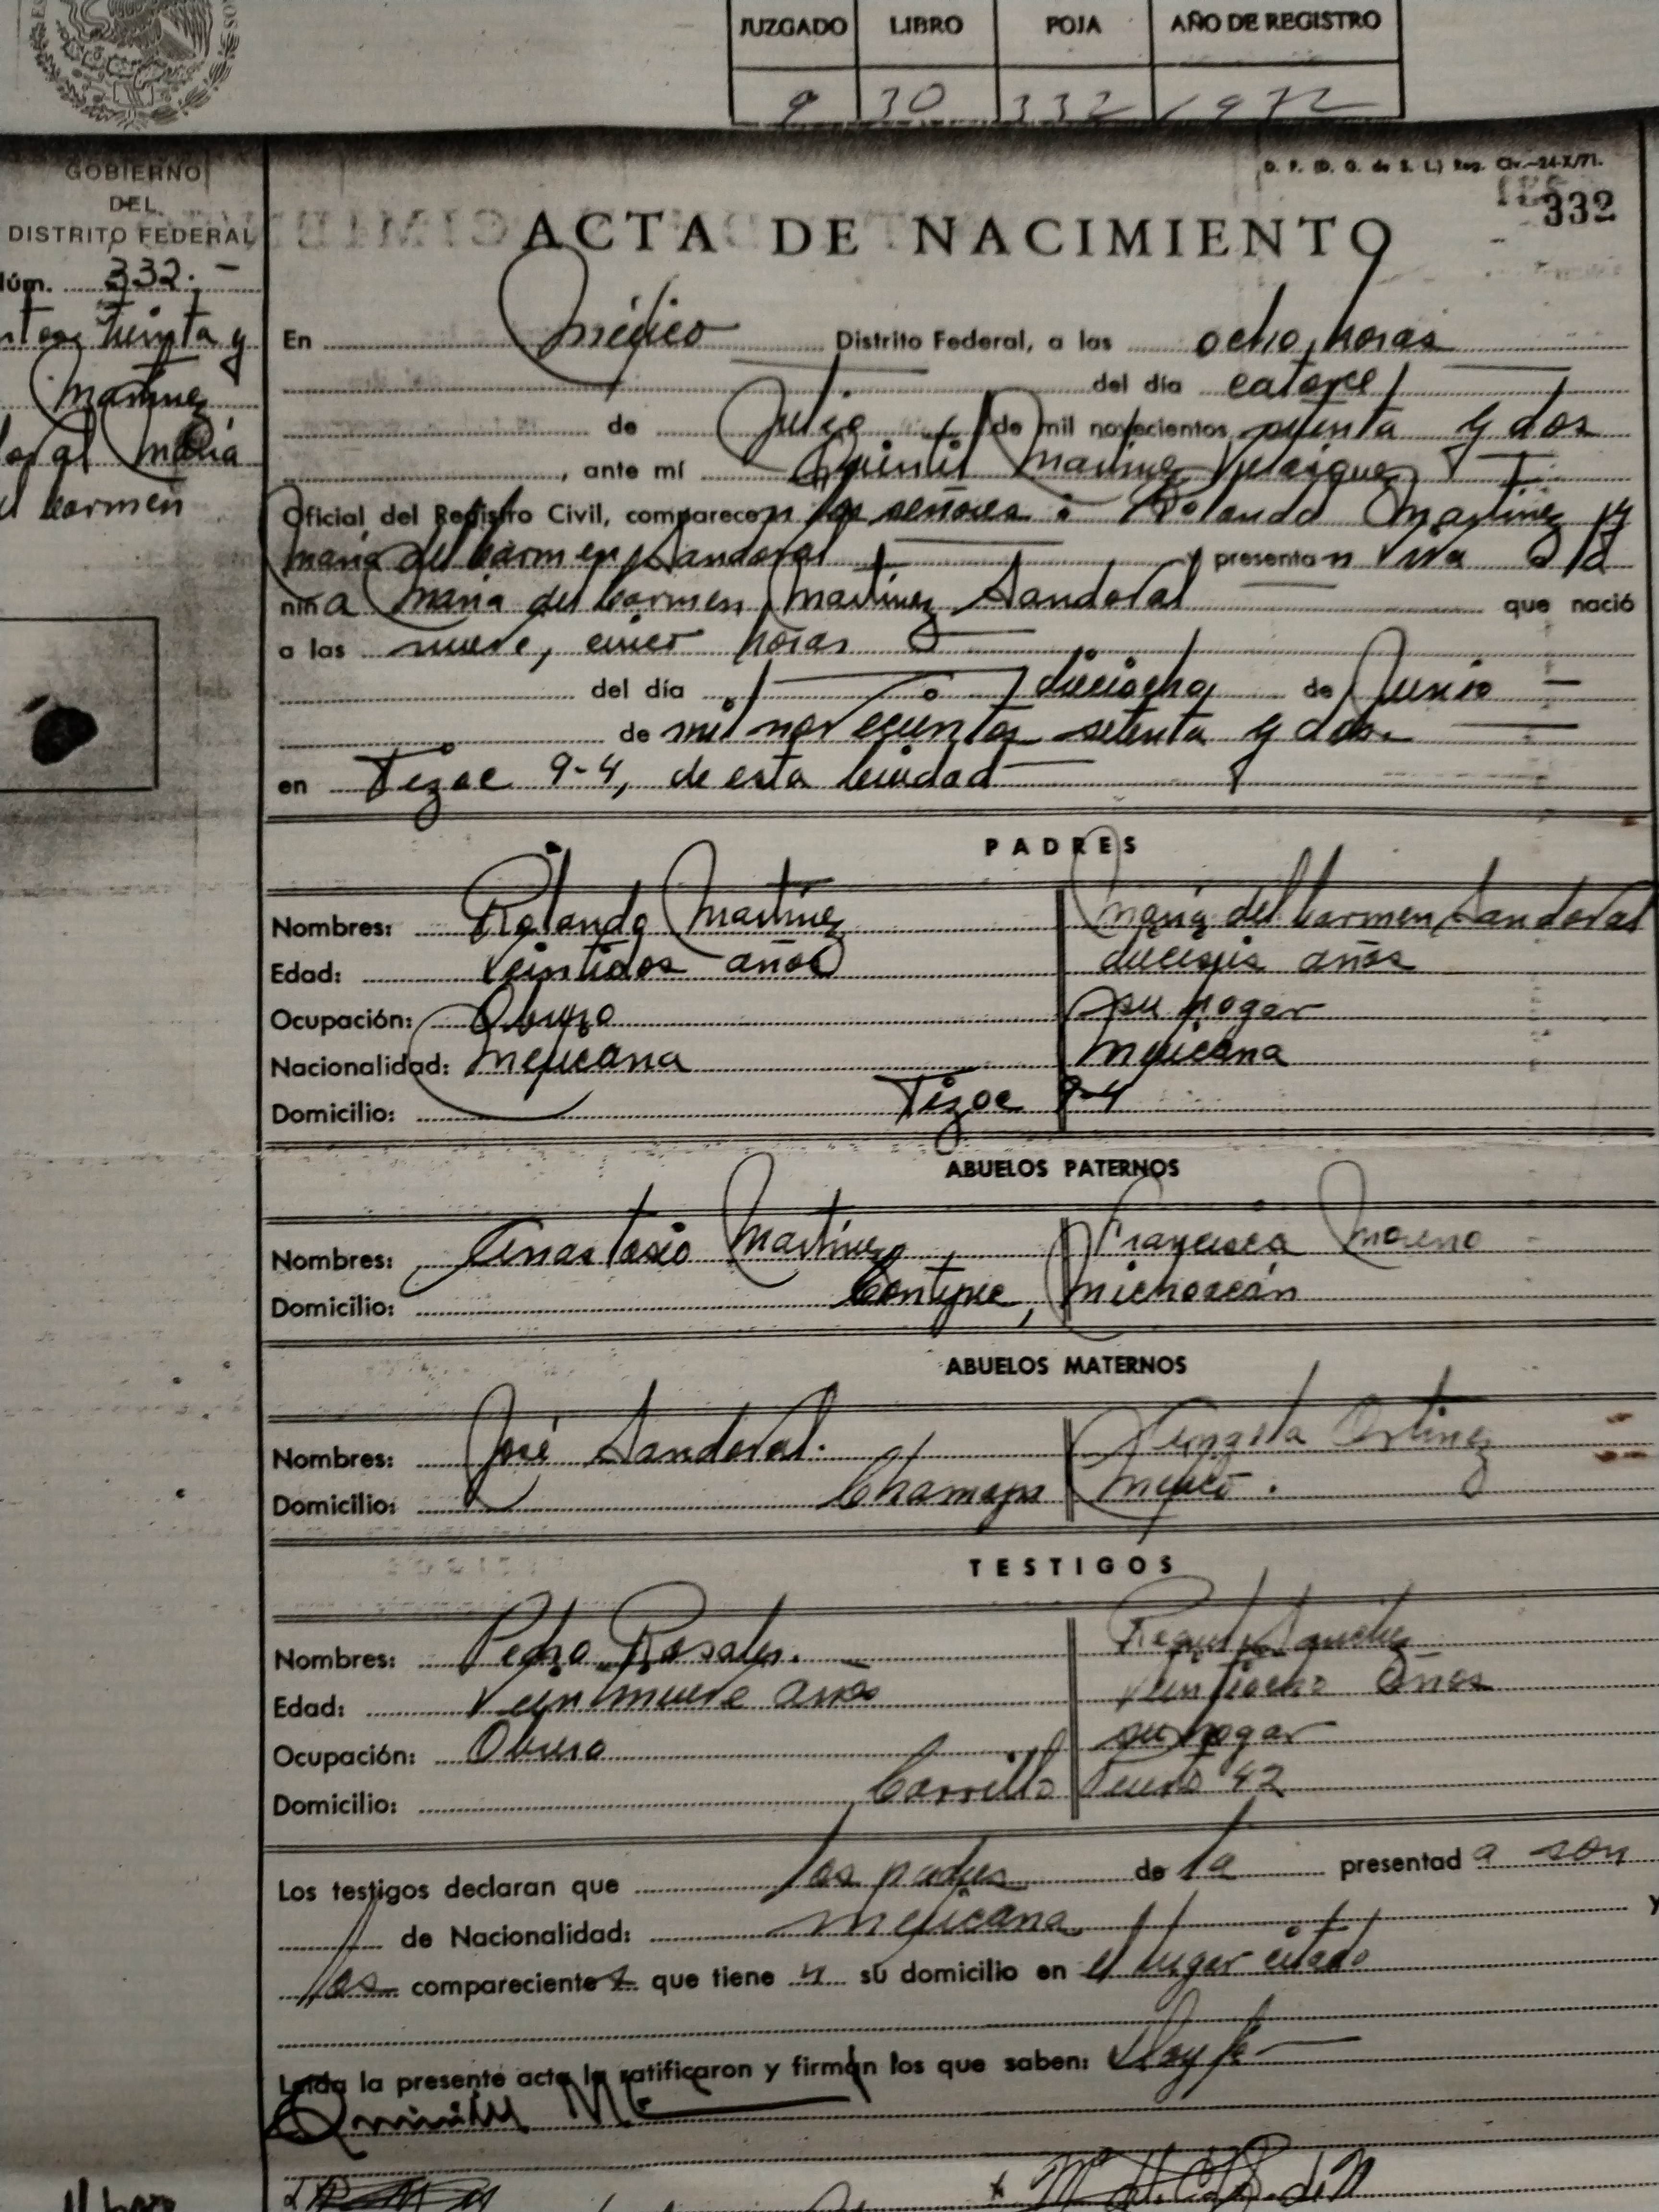 JUZGADO LIBRO FOJA AÑO DE REGISTRO
9 30 332 1972
D. F. (D. G. de S. L.) Reg. Civ.—24-X/71.
332
GOBIERNO
DEL
DISTRITO FEDERAL
Núm. 332.-
treinta y
Martínez
María
Carmen
ACTA DE NACIMIENTO
En Méjico Distrito Federal, a las ocho horas
del día catorce
de Julio de mil novecientos setenta y dos
, ante mí Quintil Martínez Velásquez
Oficial del Registro Civil, comparecen los señores: Rolando Martínez y
María del Carmen Sandoval y presentan viva a la
niña María del Carmen Martínez Sandoval que nació
a las nueve, cinco horas
del día dieciocho de Junio
de mil novecientos setenta y dos.
en Tizoc 9-4, de esta Ciudad
PADRES
Nombres: Rolando Martínez María del Carmen Sandoval
Edad: veintidos años dieciseis años
Ocupación: Obrero su hogar
Nacionalidad: Mejicana Mejicana
Domicilio: Tizoc 9-4
ABUELOS PATERNOS
Nombres: Anastasio Martínez Francisca Moreno
Domicilio: Contepec, Michoacán
ABUELOS MATERNOS
Nombres: José Sandoval.
Domicilio: Chamapa Méjico.
TESTIGOS
Nombres: Pedro Rosales.
Edad: veintinueve años veintiocho años
Ocupación: Obrero su hogar
Domicilio: Carrillo Puerto 42
Los testigos declaran que los padres de la presentada son
de Nacionalidad: mejicana y
los comparecientes que tienen su domicilio en el lugar citado
Leída la presente acta la ratificaron y firman los que saben: Doy fe